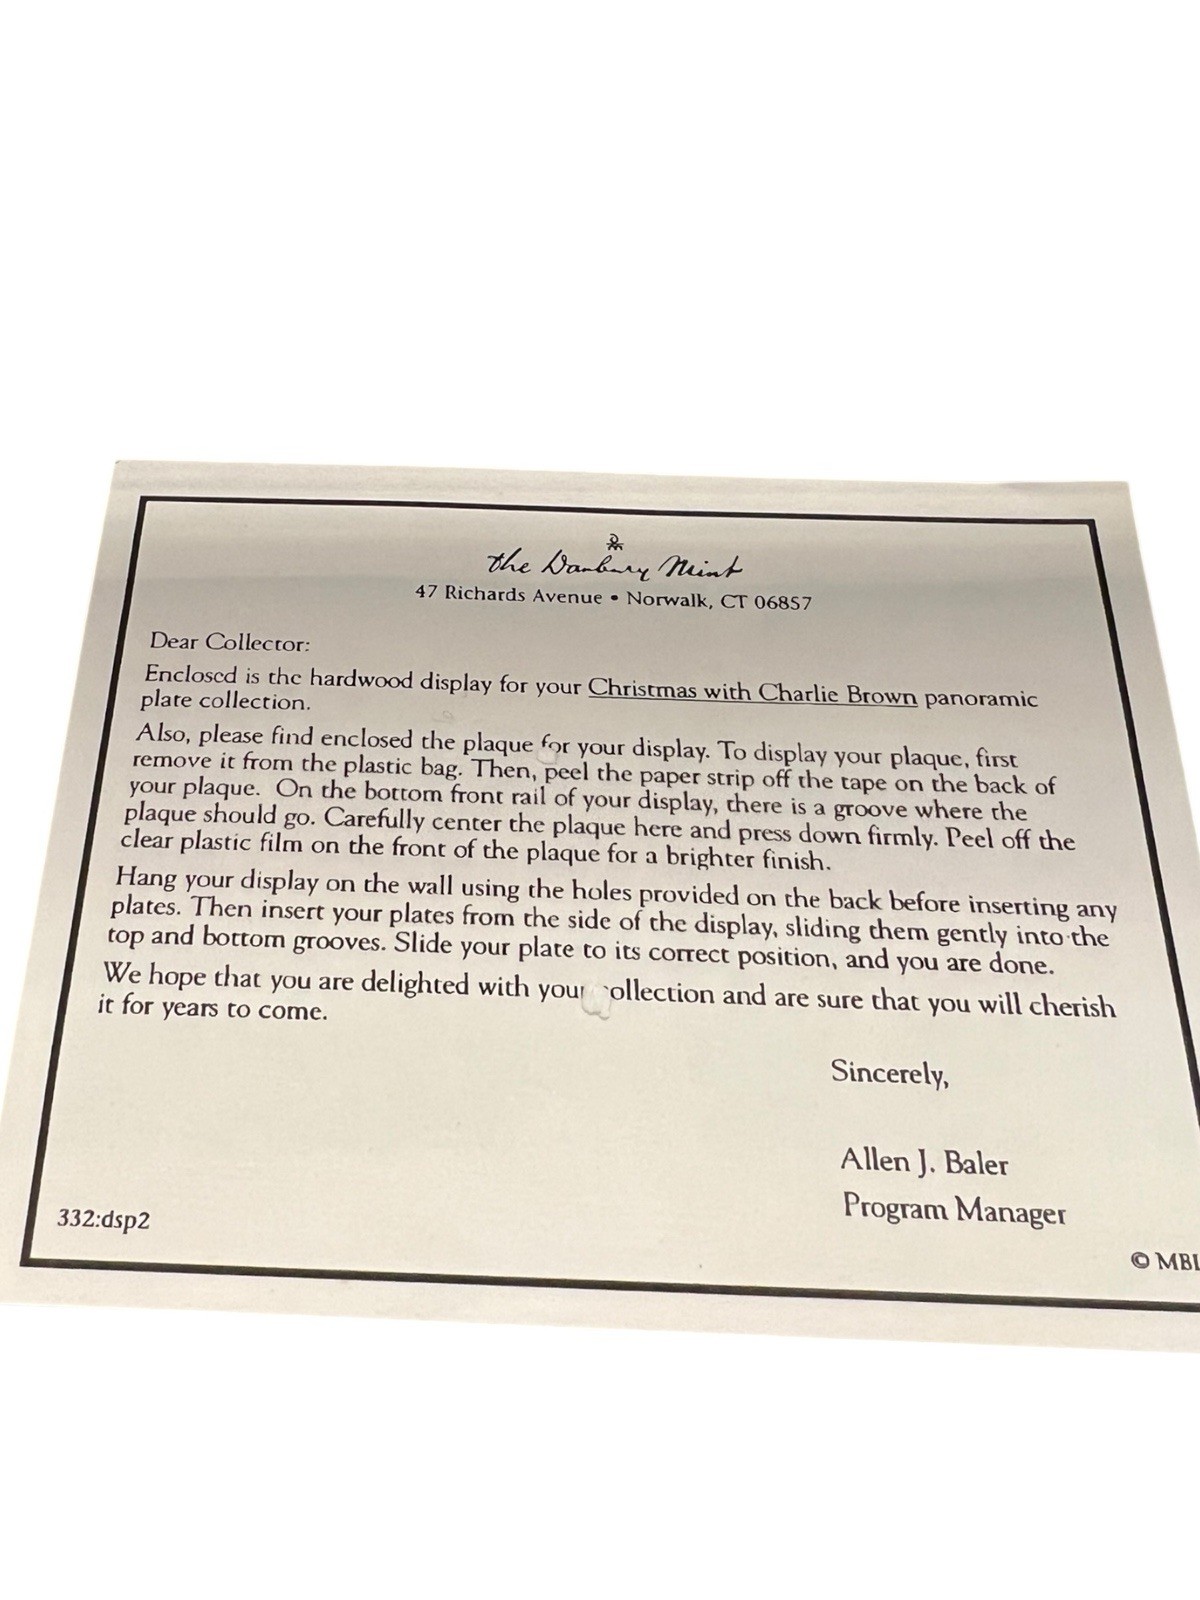 the Danbury Mint
47 Richards Avenue • Norwalk, CT 06857
Dear Collector:
Enclosed is the hardwood display for your Christmas with Charlie Brown panoramic
plate collection.
Also, please find enclosed the plaque for your display. To display your plaque, first
remove it from the plastic bag. Then, peel the paper strip off the tape on the back of
your plaque. On the bottom front rail of your display, there is a groove where the
plaque should go. Carefully center the plaque here and press down firmly. Peel off the
clear plastic film on the front of the plaque for a brighter finish.
Hang your display on the wall using the holes provided on the back before inserting any
plates. Then insert your plates from the side of the display, sliding them gently into the
top and bottom grooves. Slide your plate to its correct position, and you are done.
We hope that you are delighted with your collection and are sure that you will cherish
it for years to come.
Sincerely,
Allen J. Baler
Program Manager
332:dsp2
© MBI